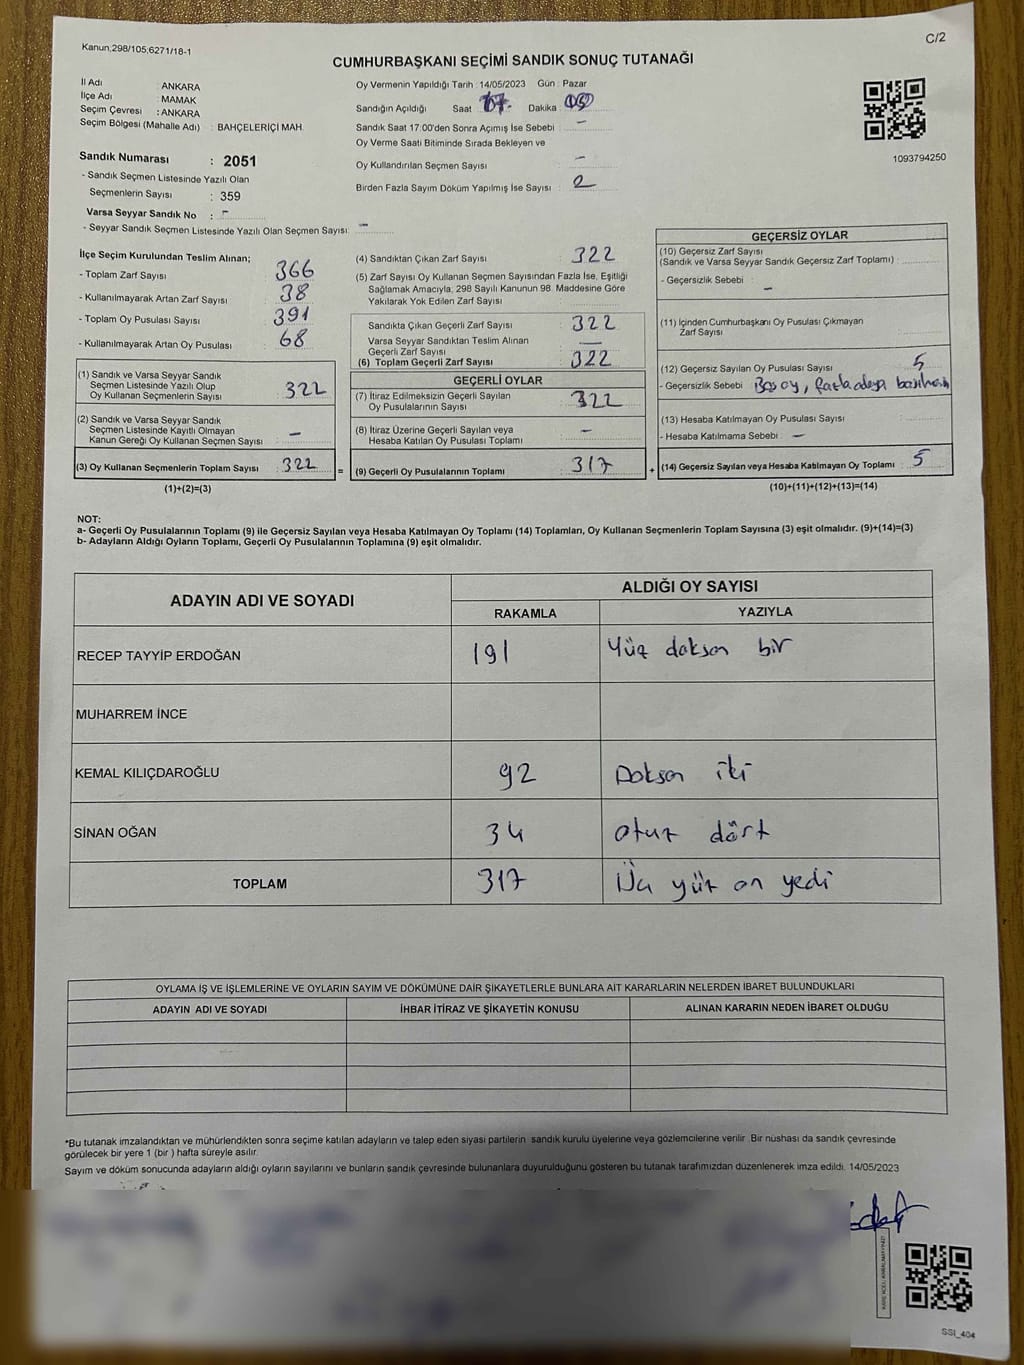 Kanun;298/105;6271/18-1
C/2
CUMHURBAŞKANI SEÇİMİ SANDIK SONUÇ TUTANAĞI
İl Adı : ANKARA
İlçe Adı : MAMAK
Seçim Çevresi : ANKARA
Seçim Bölgesi (Mahalle Adı) : BAHÇELERİÇİ MAH.
Sandık Numarası : 2051
- Sandık Seçmen Listesinde Yazılı Olan
Seçmenlerin Sayısı : 359
Varsa Seyyar Sandık No : -
- Seyyar Sandık Seçmen Listesinde Yazılı Olan Seçmen Sayısı: -
Oy Vermenin Yapıldığı Tarih : 14/05/2023 Gün : Pazar
Sandığın Açıldığı Saat 17. Dakika
Sandık Saat 17:00'den Sonra Açımış İse Sebebi : -
Oy Verme Saati Bitiminde Sırada Bekleyen ve
Oy Kullandırılan Seçmen Sayısı : -
Birden Fazla Sayım Döküm Yapılmış İse Sayısı : 2
1093794250
İlçe Seçim Kurulundan Teslim Alınan;
- Toplam Zarf Sayısı : 366
- Kullanılmayarak Artan Zarf Sayısı : 38
- Toplam Oy Pusulası Sayısı : 391
- Kullanılmayarak Artan Oy Pusulası : 68
(1) Sandık ve Varsa Seyyar Sandık
Seçmen Listesinde Yazılı Olup
Oy Kullanan Seçmenlerin Sayısı : 322
(2) Sandık ve Varsa Seyyar Sandık
Seçmen Listesinde Kayıtlı Olmayan
Kanun Gereği Oy Kullanan Seçmen Sayısı : -
(3) Oy Kullanan Seçmenlerin Toplam Sayısı : 322
(1)+(2)=(3)
(4) Sandıktan Çıkan Zarf Sayısı : 322
(5) Zarf Sayısı Oy Kullanan Seçmen Sayısından Fazla İse, Eşitliği
Sağlamak Amacıyla; 298 Sayılı Kanunun 98. Maddesine Göre
Yakılarak Yok Edilen Zarf Sayısı :
Sandıkta Çıkan Geçerli Zarf Sayısı : 322
Varsa Seyyar Sandıktan Teslim Alınan
Geçerli Zarf Sayısı : -
(6) Toplam Geçerli Zarf Sayısı : 322
GEÇERLİ OYLAR
(7) İtiraz Edilmeksizin Geçerli Sayılan
Oy Pusulalarının Sayısı : 322
(8) İtiraz Üzerine Geçerli Sayılan veya
Hesaba Katılan Oy Pusulası Toplamı : -
= (9) Geçerli Oy Pusulalarının Toplamı : 317
GEÇERSİZ OYLAR
(10) Geçersiz Zarf Sayısı
(Sandık ve Varsa Seyyar Sandık Geçersiz Zarf Toplamı) :
- Geçersizlik Sebebi : -
(11) İçinden Cumhurbaşkanı Oy Pusulası Çıkmayan
Zarf Sayısı :
(12) Geçersiz Sayılan Oy Pusulası Sayısı : 5
- Geçersizlik Sebebi : Boş oy, fazla adaya
(13) Hesaba Katılmayan Oy Pusulası Sayısı :
- Hesaba Katılmama Sebebi : -
+ (14) Geçersiz Sayılan veya Hesaba Katılmayan Oy Toplamı : 5
(10)+(11)+(12)+(13)=(14)
NOT:
a- Geçerli Oy Pusulalarının Toplamı (9) ile Geçersiz Sayılan veya Hesaba Katılmayan Oy Toplamı (14) Toplamları, Oy Kullanan Seçmenlerin Toplam Sayısına (3) eşit olmalıdır. (9)+(14)=(3)
b- Adayların Aldığı Oyların Toplamı, Geçerli Oy Pusulalarının Toplamına (9) eşit olmalıdır.
ADAYIN ADI VE SOYADI
ALDIĞI OY SAYISI
RAKAMLA YAZIYLA
RECEP TAYYİP ERDOĞAN 191 Yüz doksan bir
MUHARREM İNCE
KEMAL KILIÇDAROĞLU 92 Doksan iki
SİNAN OĞAN 34 otuz dört
TOPLAM 317 Üç yüz on yedi
OYLAMA İŞ VE İŞLEMLERİNE VE OYLARIN SAYIM VE DÖKÜMÜNE DAİR ŞİKAYETLERLE BUNLARA AİT KARARLARIN NELERDEN İBARET BULUNDUKLARI
ADAYIN ADI VE SOYADI İHBAR İTİRAZ VE ŞİKAYETİN KONUSU ALINAN KARARIN NEDEN İBARET OLDUĞU
*Bu tutanak imzalandıktan ve mühürlendikten sonra seçime katılan adayların ve talep eden siyasi partilerin sandık kurulu üyelerine veya gözlemcilerine verilir. Bir nüshası da sandık çevresinde
görülecek bir yere 1 (bir ) hafta süreyle asılır.
Sayım ve döküm sonucunda adayların aldığı oyların sayılarını ve bunların sandık çevresinde bulunanlara duyurulduğunu gösteren bu tutanak tarafımızdan düzenlenerek imza edildi. 14/05/2023
SSI_404